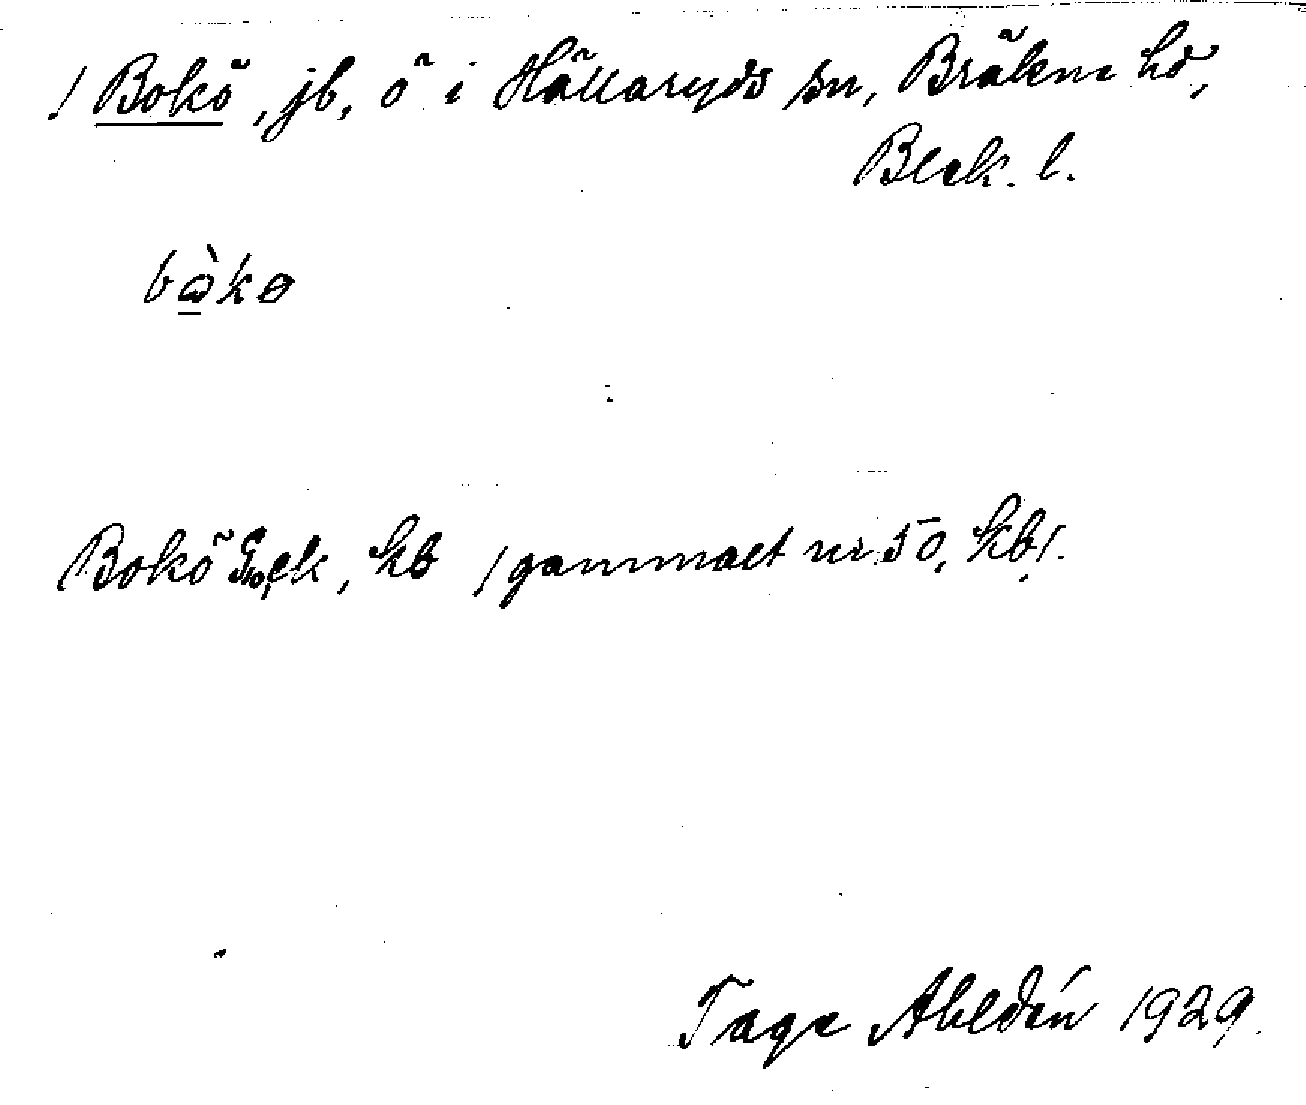 / Bokö, jb, ö i Hällaryds sn, Bräkne hd,
Blek. l.
bòkø
Bokö ek, kb /gammalt nr 50, kb/.
Tage Ahldén 1929.